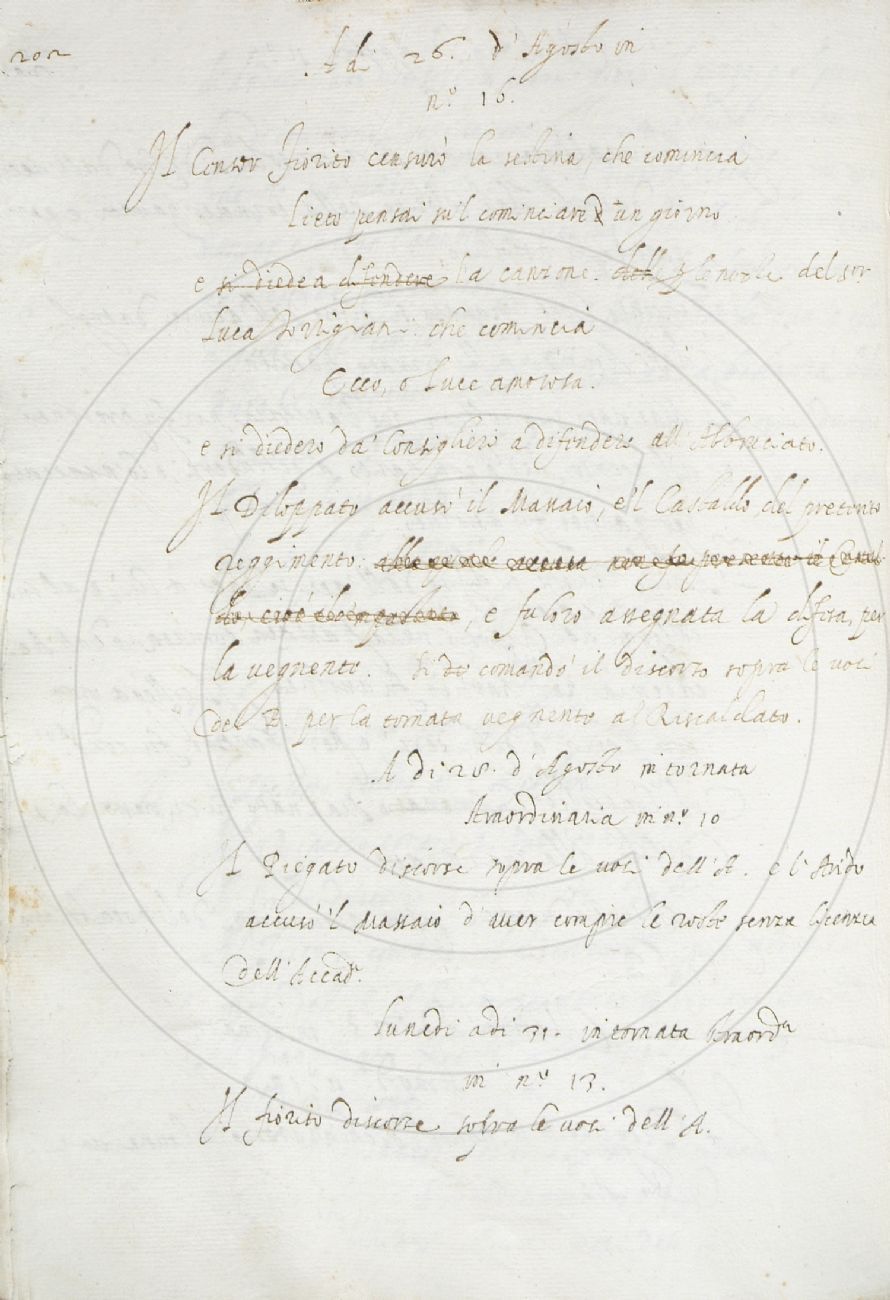 202
A dì 26. d'Agosto in
n.º 16.
Il Consor Fiorito censurò la sestina, che comincia
Lieto pensai su'l cominciare un giorno
e si diede a difendere la canzone. delle nozze del sor
Luca Torrigiani che comincia
Ecco, o luce amorosa.
e si diedero da' Consiglieri a difendere all'Abbruciato.
Il Diloppato accusò il Massaio, e'l Castaldo del presente
reggimento: , e fu loro assegnata la difesa, per
la vegnente. Si comandò il discorso sopra le voci
del B. per la tornata vegnente al Riscaldato.
A dì 28. d'Agosto in tornata
straordinaria in n.º 10
Il Piegato discorse sopra le voci dell'A. e l'Arido
accusò 'l Massaio d'aver compre le robe senza licenzia
dell'Accad.ª
Lunedì adì 31. in tornata straord.ª
in n.º 13.
Il fiorito discorse sopra le voci dell'A.